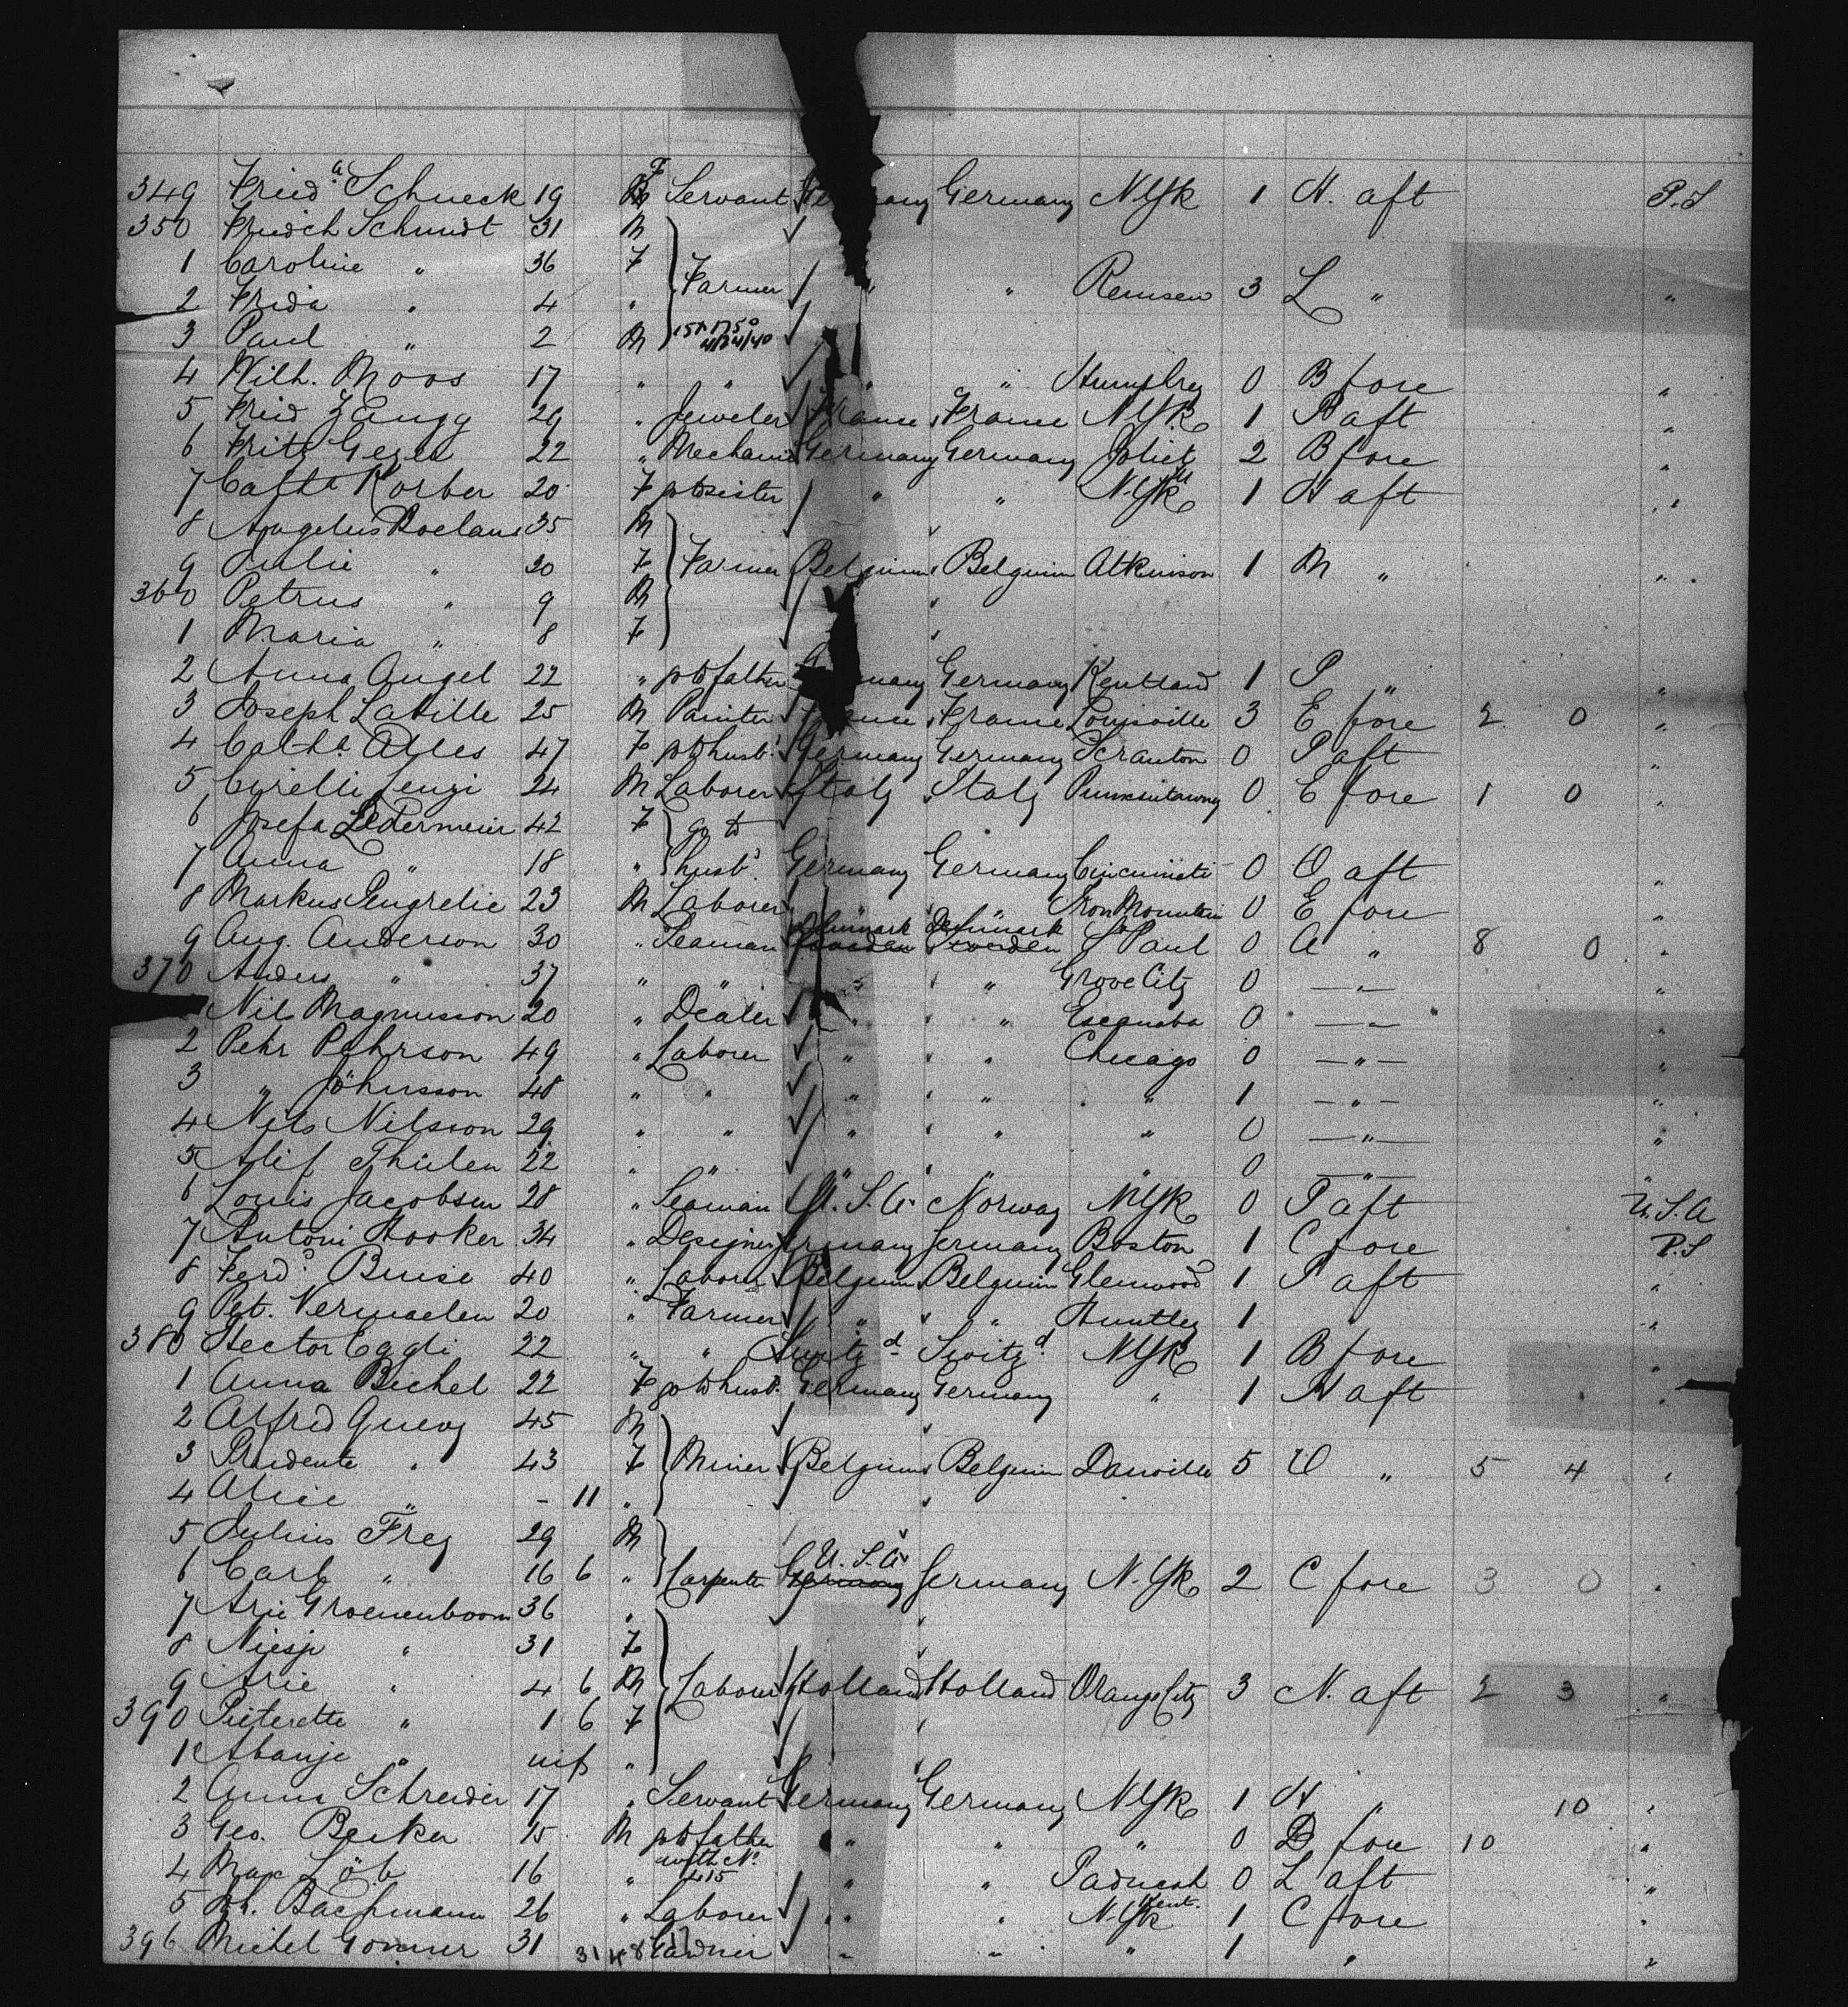 349 Fried.a Schneck 19 F Servant Germany Germany NYk 1 H. aft P.S
350 Friedch Schmidt 31 M
1 Caroline " 36 F Farmer " " Remsen 3 L " "
2 Frida " 4 "
3 Paul " 2 M
4 Wilh. Moos 17 " " " " Humphrey 0 B fore "
5 Fried Zaugg 29 " Jeweler France France NYk 1 B aft "
6 Fritz Geger 22 " Mechanic Germany Germany Joliet 2 B fore "
7 Cathe Korber 20 F gotosister " " N.Yk 1 H aft "
8 Angelus Roelans 35 M
9 Julie " 20 F Farmer Belgium Belgium Atkinson 1 M " "
360 Petrus " 9 M
1 Maria " 8 F
2 Anna Angel 22 " gotofather Germany Germany Kentland 1 P " "
3 Joseph Laville 25 M Painter France France Louisville 3 E fore 2 0 "
4 Cathe Alles 47 F gotohusbd Germany Germany Scranton 0 P aft "
5 Cirelli Lenzi 24 M Laborer Italy Italy Punxsutawney 0 E fore 1 0 "
6 Josefa Ledermeier 42 F go to
7 Anna " 18 " husbd Germany Germany Cincinnati 0 O aft "
8 Markus 23 M Laborer " " Iron Mountain 0 E fore "
9 Aug. Anderson 30 " Seaman Denmark Denmark St Paul 0 A " 8 0 "
370 Anders " 37 " " " " Grove City 0 — " — "
Nils Magnusson 20 " Dealer " " Escanaba 0 — " — "
2 Pehr Pehrson 49 " Laborer " " Chicago 0 — " — "
3 " Johnsson 48 " " " " " 1 — " — "
4 Nils Nilsson 29 " " " " " 0 — " — "
5 Alif Thulen 22 " " " " " 0 — " — "
6 Louis Jacobsen 28 " Seaman U.S.A. Norway NYk 0 P aft U.S.A
7 Antoni Hooker 34 " Designer Germany Germany Boston 1 C fore P.S
8 Ferd. Buise 40 " Laborer Belgium Belgium Glenwood 1 P aft "
9 Pet. Vermaelen 20 " Farmer " " Huntley 1 " "
380 Hector Eggli 22 " " Switzd Switzd NYk 1 B fore "
1 Anna Bechel 22 F gotohusb. Germany Germany " 1 N aft "
2 Alfred Quevy 45 M
3 Prudente " 43 F Miner Belgium Belgium Danville 5 O " 5 4 "
4 Alice " - 11 "
5 Julius Frey 29 M
6 Carl " 16 6 " Carpenter U.S.A. Germany N.Yk 2 C fore 3 0 "
7 Arie Groenenboom 36 "
8 Niesje " 31 F
9 Arie " 4 6 M Laborer Holland Holland Orange City 3 N. aft 2 3 "
390 Pieterette " 1 6 F
1 " inf "
2 Anna Schreider 17 " Servant Germany Germany NYk 1 H " 10 "
3 Geo. Becker 15 M gotofather " " " 0 D fore 10 "
4 Max Löb 16 " with No. 415 " " Paducah Kent. 0 L aft "
5 Bachmann 26 " Laborer " " N.Yk 1 C fore "
396 Michel Gonner 31 " Gardner " " " 1 " "